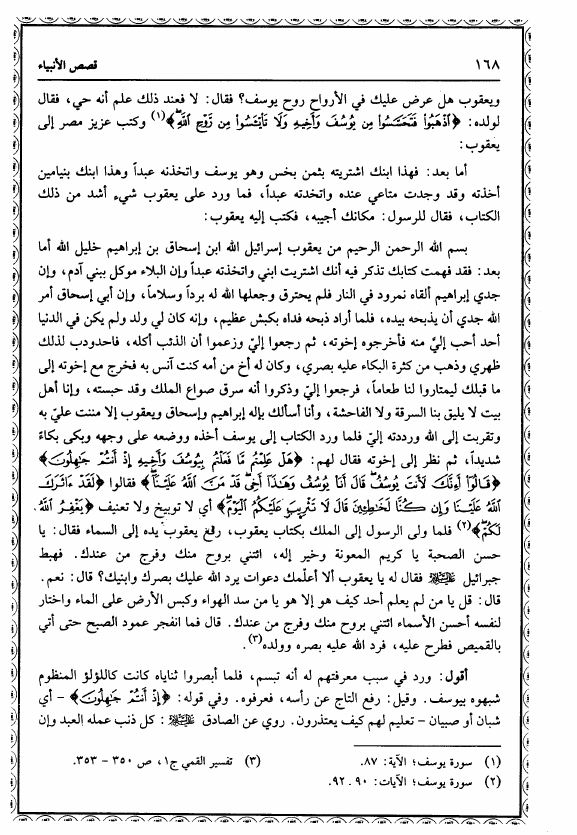 ١٦٨
قصص الأنبياء
ويعقوب هل عرض عليك في الأرواح روح يوسف؟ فقال: لا فعند ذلك علم أنه حي، فقال
لولده: ﴿ٱذْهَبُوا۟ فَتَحَسَّسُوا۟ مِن يُوسُفَ وَأَخِيهِ وَلَا تَا۟يْـَٔسُوا۟ مِن رَّوْحِ ٱللَّهِ﴾(١) وكتب عزيز مصر إلى
يعقوب:
أما بعد: فهذا ابنك اشتريته بثمن بخس وهو يوسف واتخذته عبداً وهذا ابنك بنيامين
أخذته وقد وجدت متاعي عنده واتخدته عبداً، فما ورد على يعقوب شيء أشد من ذلك
الكتاب، فقال للرسول: مكانك أجيبه، فكتب إليه يعقوب:
بسم الله الرحمن الرحيم من يعقوب إسرائيل الله ابن إسحاق بن إبراهيم خليل الله أما
بعد: فقد فهمت كتابك تذكر فيه أنك اشتريت ابني واتخذته عبداً وإن البلاء موكل ببني آدم، وإن
جدي إبراهيم ألقاه نمرود في النار فلم يحترق وجعلها الله له برداً وسلاماً، وإن أبي إسحاق أمر
الله جدي أن يذبحه بيده، فلما أراد ذبحه فداه بكبش عظيم، وإنه كان لي ولد ولم يكن في الدنيا
أحد أحب إليّ منه فأخرجوه إخوته، ثم رجعوا إليّ وزعموا أن الذئب أكله، فاحدودب لذلك
ظهري وذهب من كثرة البكاء عليه بصري، وكان له أخ من أمه كنت آنس به فخرج مع إخوته إلى
ما قبلك ليمتاروا لنا طعاماً، فرجعوا إليّ وذكروا أنه سرق صواع الملك وقد حبسته، وإنا أهل
بيت لا يليق بنا السرقة ولا الفاحشة، وأنا أسألك بإله إبراهيم وإسحاق ويعقوب إلا مننت عليّ به
وتقربت إلى الله ورددته إليّ فلما ورد الكتاب إلى يوسف أخذه ووضعه على وجهه وبكى بكاءً
شديداً، ثم نظر إلى إخوته فقال لهم: ﴿هَلْ عَلِمْتُم مَّا فَعَلْتُم بِيُوسُفَ وَأَخِيهِ إِذْ أَنتُمْ جَٰهِلُونَ﴾
﴿قَالُوٓا۟ أَءِنَّكَ لَأَنتَ يُوسُفُ قَالَ أَنَا۠ يُوسُفُ وَهَٰذَآ أَخِى قَدْ مَنَّ ٱللَّهُ عَلَيْنَآ﴾ فقالوا ﴿لَقَدْ ءَاثَرَكَ
ٱللَّهُ عَلَيْنَا وَإِن كُنَّا لَخَٰطِـِٔينَ قَالَ لَا تَثْرِيبَ عَلَيْكُمُ ٱلْيَوْمَ﴾ أي لا توبيخ ولا تعنيف ﴿يَغْفِرُ ٱللَّهُ
لَكُمْ﴾(٢) فلما ولى الرسول إلى الملك بكتاب يعقوب، رفع يعقوب يده إلى السماء فقال: يا
حسن الصحبة يا كريم المعونة وخير إله، ائتني بروح منك وفرج من عندك. فهبط
جبرائيل عليه السلام فقال له يا يعقوب ألا أعلّمك دعوات يرد الله عليك بصرك وابنيك؟ قال: نعم.
قال: قل يا من لم يعلم أحد كيف هو إلا هو يا من سد الهواء وكبس الأرض على الماء واختار
لنفسه أحسن الأسماء ائتني بروح منك وفرج من عندك. قال فما انفجر عمود الصبح حتى أتي
بالقميص فطرح عليه، فرد الله عليه بصره وولده(٣).
أقول: ورد في سبب معرفتهم له أنه تبسم، فلما أبصروا ثناياه كانت كاللؤلؤ المنظوم
شبهوه بيوسف. وقيل: رفع التاج عن رأسه، فعرفوه. وفي قوله: ﴿إِذْ أَنتُمْ جَٰهِلُونَ﴾ - أي
شبان أو صبيان - تعليم لهم كيف يعتذرون. روي عن الصادق عليه السلام: كل ذنب عمله العبد وإن
(١) سورة يوسف؛ الآية: ٨٧.
(٢) سورة يوسف؛ الآيات: ٩٠. ٩٢.
(٣) تفسير القمي ج١، ص ٣٥٠ - ٣٥٣.